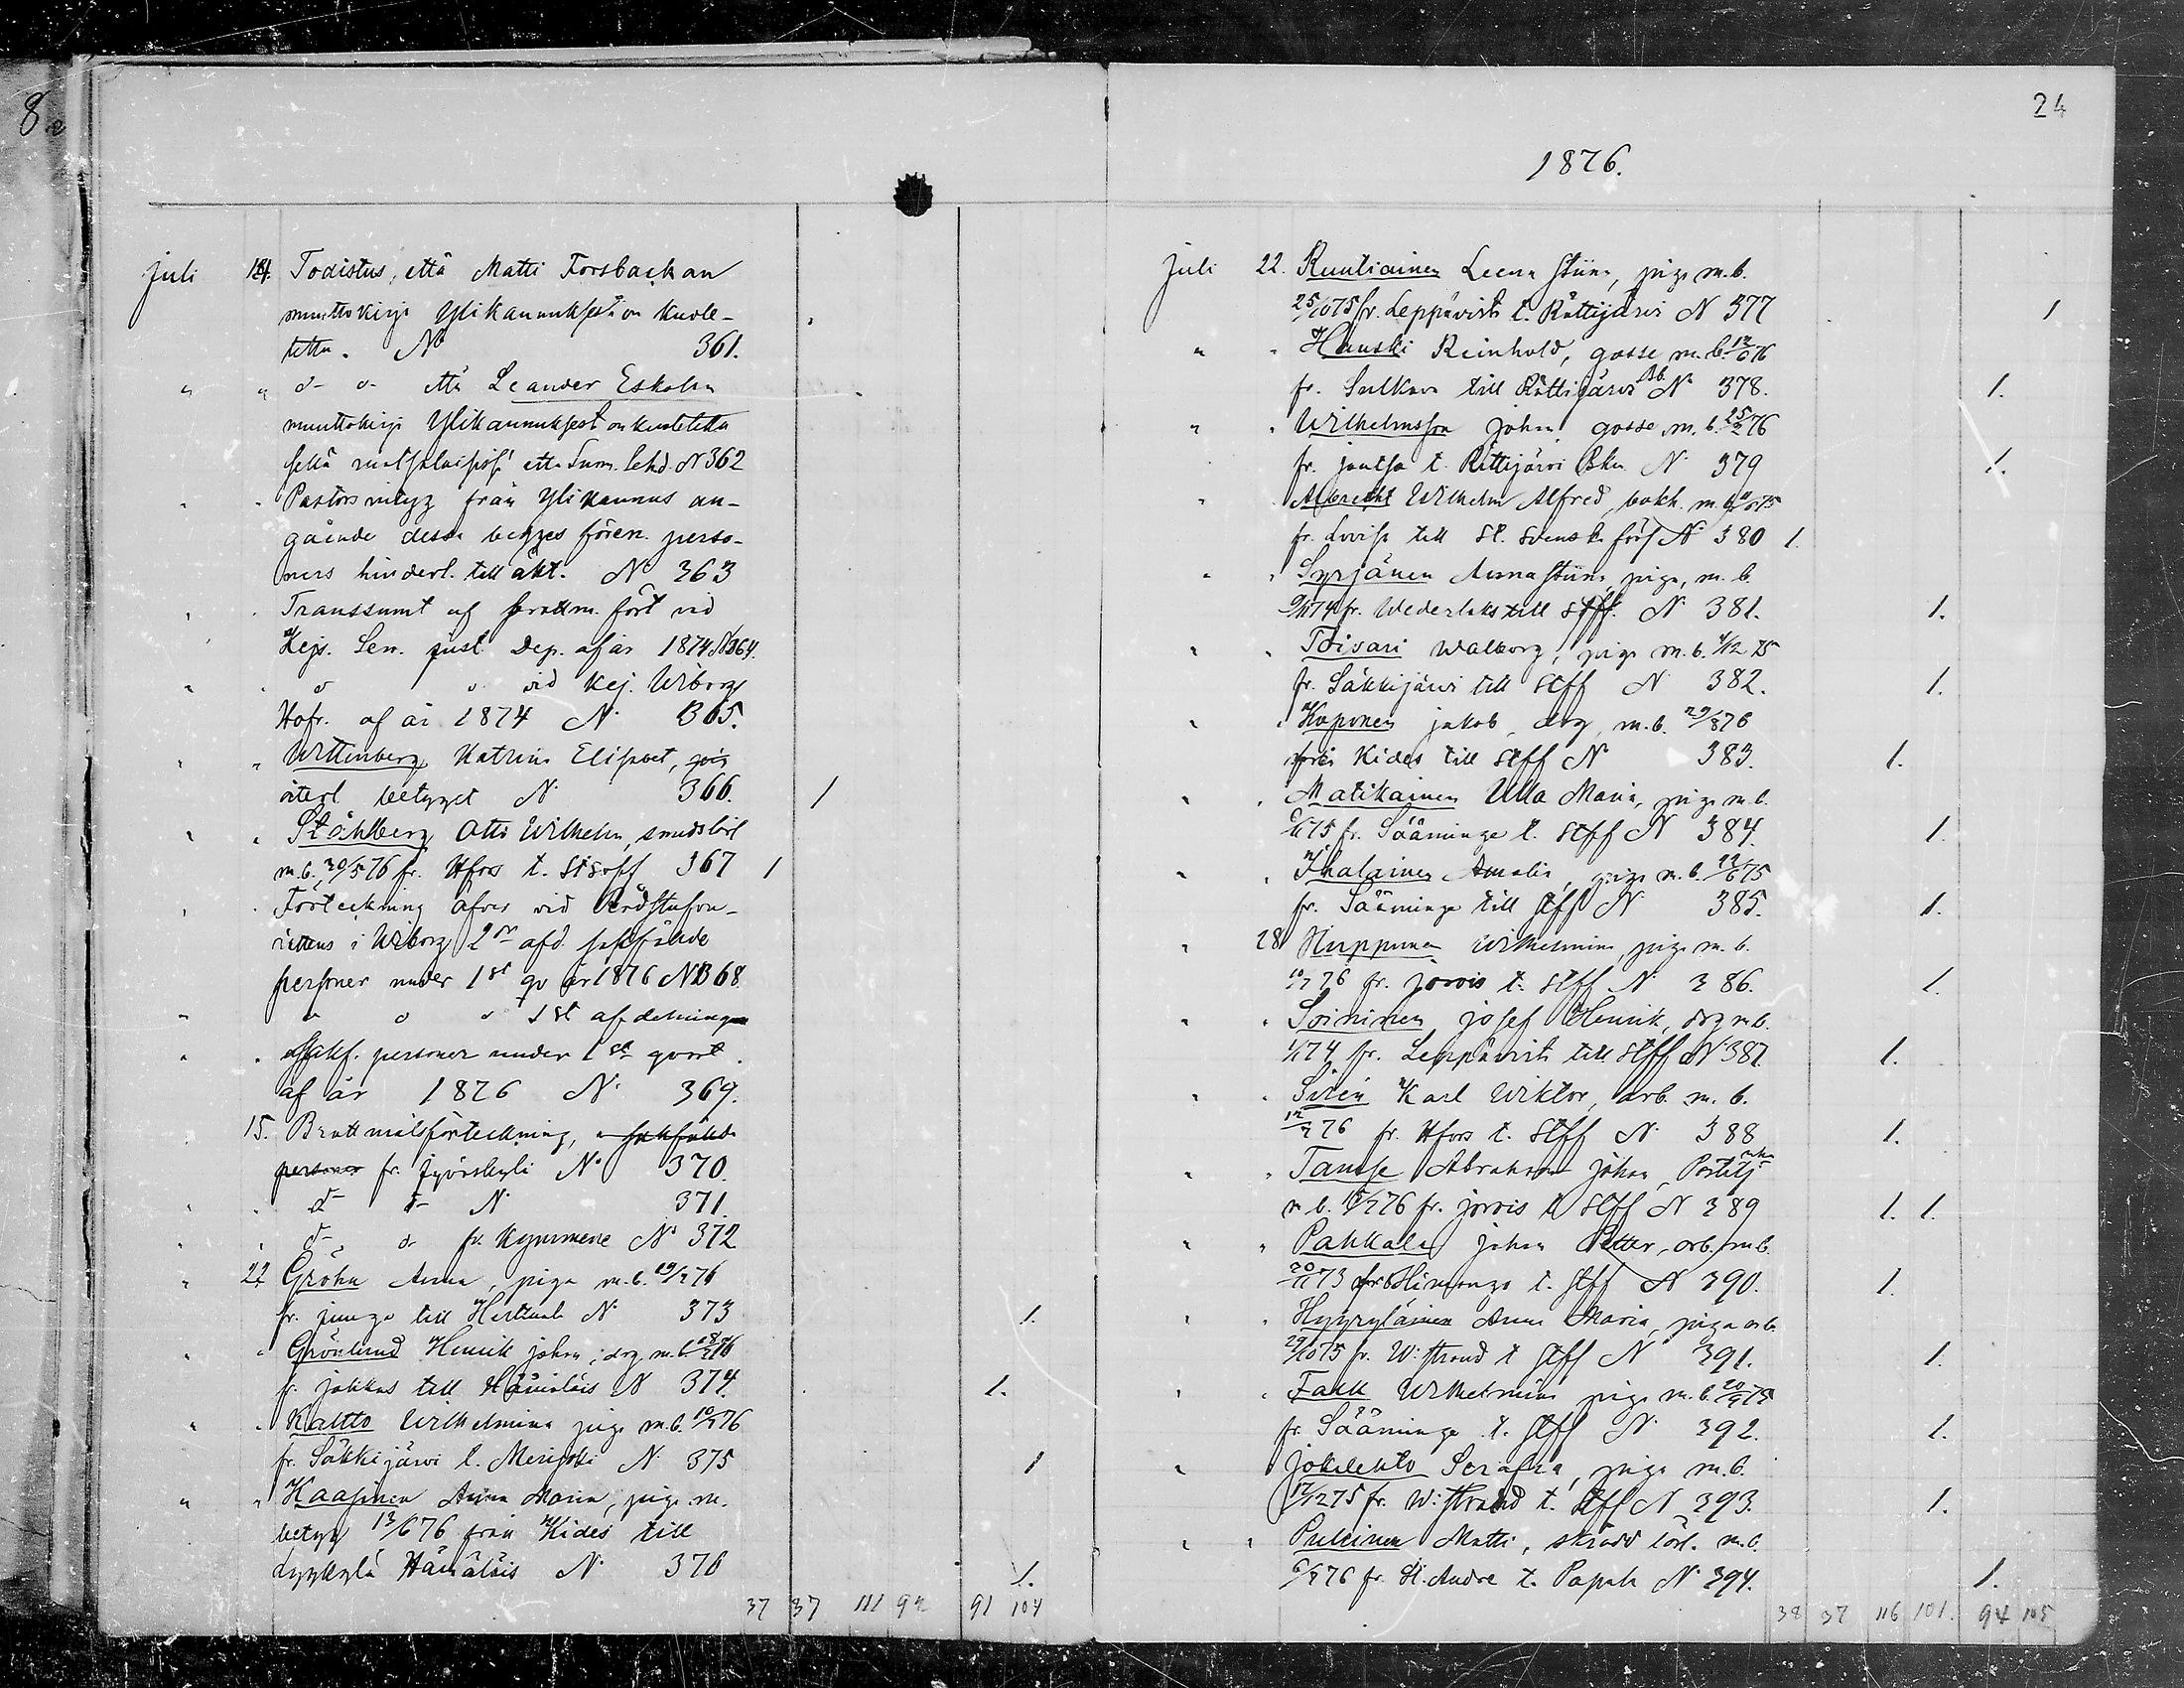 8
24
1876.
Juli 14. Todistus, että Matti Forsbackan
muuttokirja Ylikannuksesta on kuole-
tettu. No 361.
" " d- o- että Leander Eskolan
muuttokirja Ylikannuksest on kuoletettu
sekä ett Sum. lehd. N 362
" " Pastors intyg från Ylikannus an-
gående dessa begges fören. perso-
ners hinderl. till äkt. No 363
" " Transsumt af brottm. fört vid
Kejs. Sen. just. Dep. af år 1874 N 364.
" " o o vid Kej. Wiborgs
Hofr. af år 1874 N 365.
" " Wittenberg Katrina Elisabet,
återl betyget N 366. 1
" " Ståhlberg Otto Wilhelm, smedslärl
m.b. 30/5 76 fr. Hfors t. St 367 1
" " Förteckning öfver vid Rådstufvu-
rättens i Wiborg 2dra afd. sakfälde
personer under 1st qv år 1876 N 368
" " o o 1st afdelningen
" " sakf. personer under 1st qvart.
af år 1876 N 369.
15. Brottmålsförteckning, sakfälde
personer fr. Jyväskylä No 370.
" " d- d- N 371.
" " d- d- fr. Kymmene No 372
" 22 Gröhn Anna, piga m.b. 19/7 76
fr. Junga till N 373 1.
" " Grönlund Henrik Johan, drg m.b.
fr. Jokkas till Hämäläis N 374. 1.
" " Kaltto Wilhelmina piga m.b. 10/7 76
fr. Säkkijärvi t. Merijoki N 375 1
" " Kaasinen Anna Maria, piga m.
betyg 13/6 76 från Kides till
Lyykylä Hämäläis N 376 1.
37 37 111 92 91 104
Juli 22. Ruutiainen Leena Stiina, piga m.b.
25/10 75 fr. Leppävirta t. Rättijärvi N 377 1
" " Hauski Reinhold, gosse m.b.
fr. Sulkava till Rättijärvi N 378. 1.
" " Wilhelmsson Johan gosse m.b. 25/2 76
fr. Joutsa t. Rättijärvi N 379 1.
" " Albrecht Wilhelm Alfred, bokh. m.b.
fr. Lovisa till St. Svenska förs N 380 1.
" " Syrjänen Anna Stiina, piga, m.b.
fr. Wederlaks till Stff. N 381. 1.
" " Toisari Walborg, piga m.b. 4/12 75
fr. Säkkijärvi till Stff N 382. 1.
" " Kaponen Jakob drg, m.b. 29/8 76
från Kides till Stff N 383. 1.
" " Matikainen Ulla Maria, piga m.b.
fr. Sääminge t. Stff N 384. 1.
" " Ihalainen Amalia, piga m.b. 22/6 75
fr. Sääminge till Stff N 385. 1.
" 28 Huppunen Wilhelmina, piga m.b.
10/7 76 fr. Jorois t. Stff N 386. 1.
" " Soininen Josef Henrik, drg m.b.
fr. Leppävirta till Stff N 387 1.
" " Sirén Karl Wiktor, arb. m.b.
12/7 76 fr. Hfors t. Stff N 388 1.
" " Tamsse Abraham Johan,
m.b. fr. Jorois t. Stff N 389 1. 1.
" " Pakkala Johan Petter, arb. m.b.
fr. Himango t. Stff N 390. 1.
" " Hyyryläinen Anna Maria, piga m.b.
29/10 75 fr. W:strand t Stff N 391. 1.
" " Falk Wilhelmina piga m.b.
fr. Sääminge t. Stff N 392. 1.
" Jokilehto Serafia, piga m.b.
17/12 75 fr. W:strand t. Stff N 393. 1.
" " Pulkinen Matti, skrädd lärl. m.b.
6/7 76 fr. St. Andre t. Papula N 394. 1.
38 37 116 101. 94 105